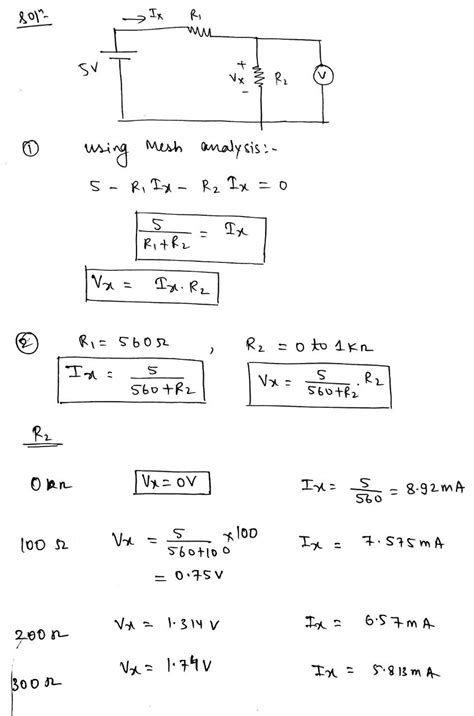 Solⁿ
→ Ix R₁
5V + Vx - R₂ V
① using Mesh analysis:-
5 - R₁ Ix - R₂ Ix = 0
5 / (R₁+R₂) = Ix
Vx = Ix. R₂
② R₁ = 560Ω , R₂ = 0 to 1kΩ
Ix = 5 / (560+R₂) Vx = 5 / (560+R₂) . R₂
R₂
0 kΩ Vx = 0V Ix = 5/560 = 8.92mA
100 Ω Vx = 5 / (560+100) × 100 Ix = 7.575mA
= 0.75V
200Ω Vx = 1.314 V Ix = 6.57mA
300Ω Vx = 1.74V Ix = 5.813mA